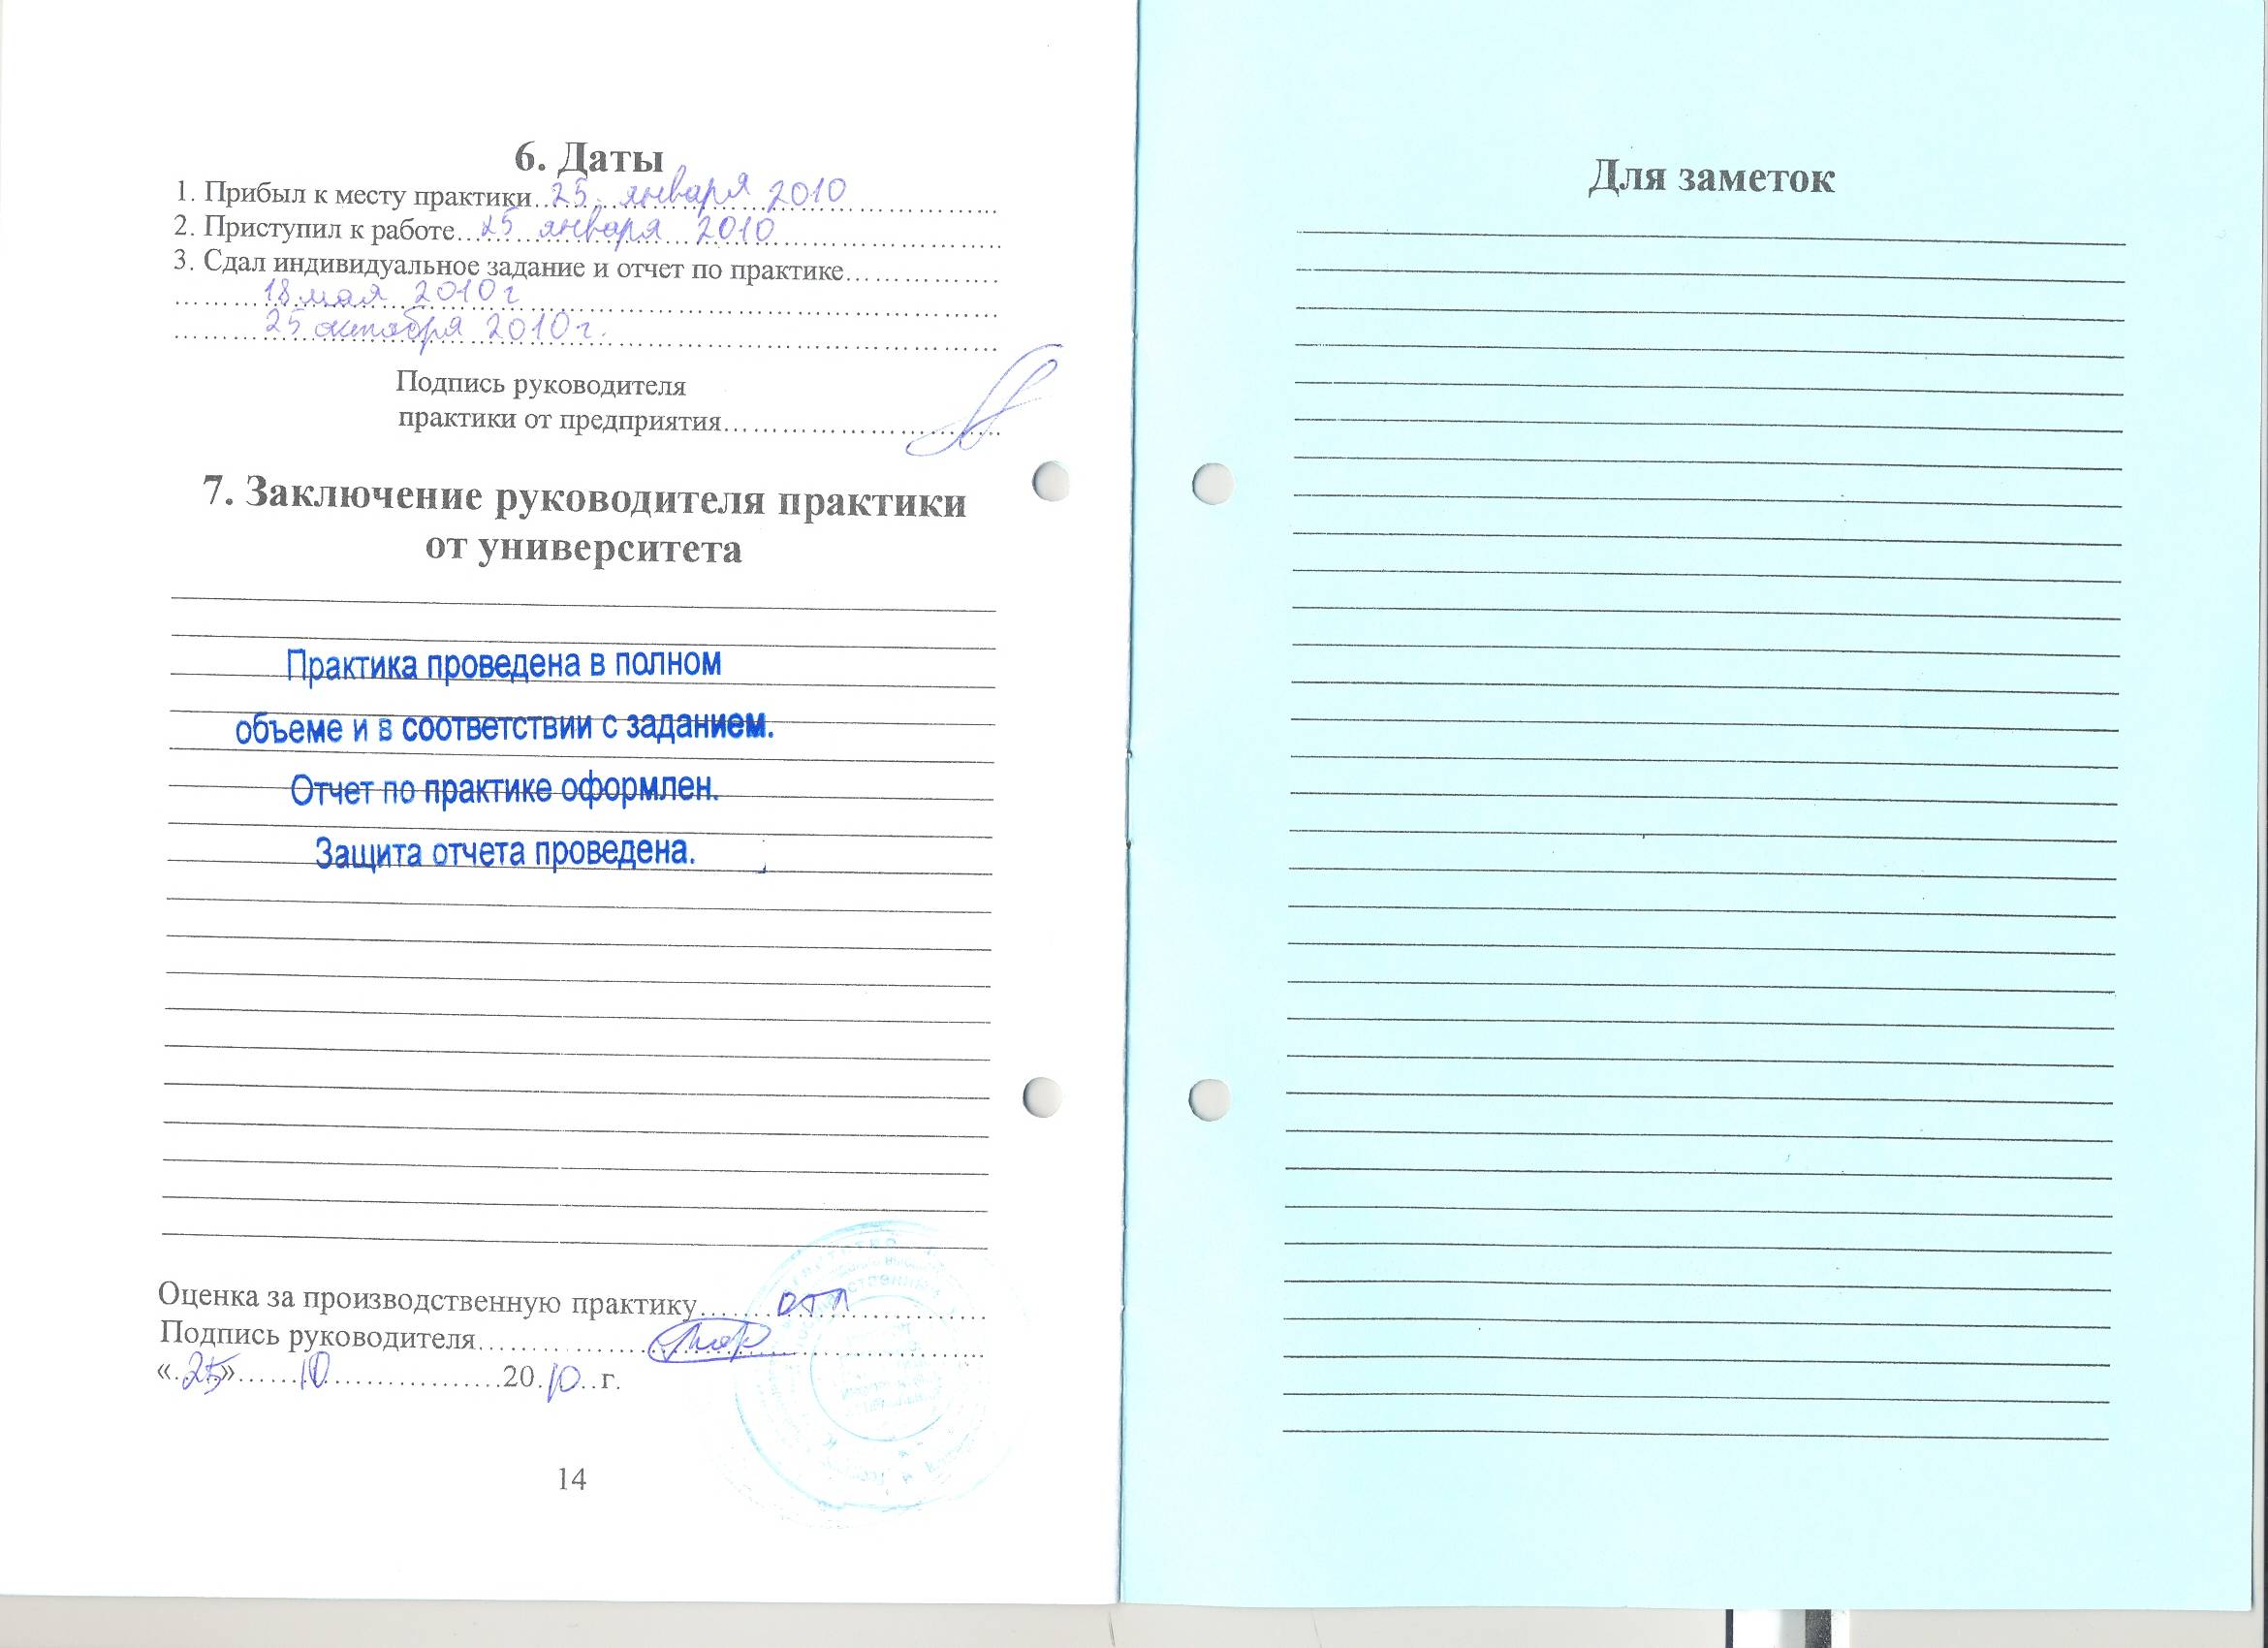 6. Даты
1. Прибыл к месту практики 25 января 2010
2. Приступил к работе 25 января 2010
3. Сдал индивидуальное задание и отчет по практике
18 мая 2010 г
25 октября 2010 г.
Подпись руководителя
практики от предприятия
7. Заключение руководителя практики
от университета
Практика проведена в полном
объеме и в соответствии с заданием.
Отчет по практике оформлен.
Защита отчета проведена.
Оценка за производственную практику отл
Подпись руководителя
«25» 10 2010 г.
14
Для заметок